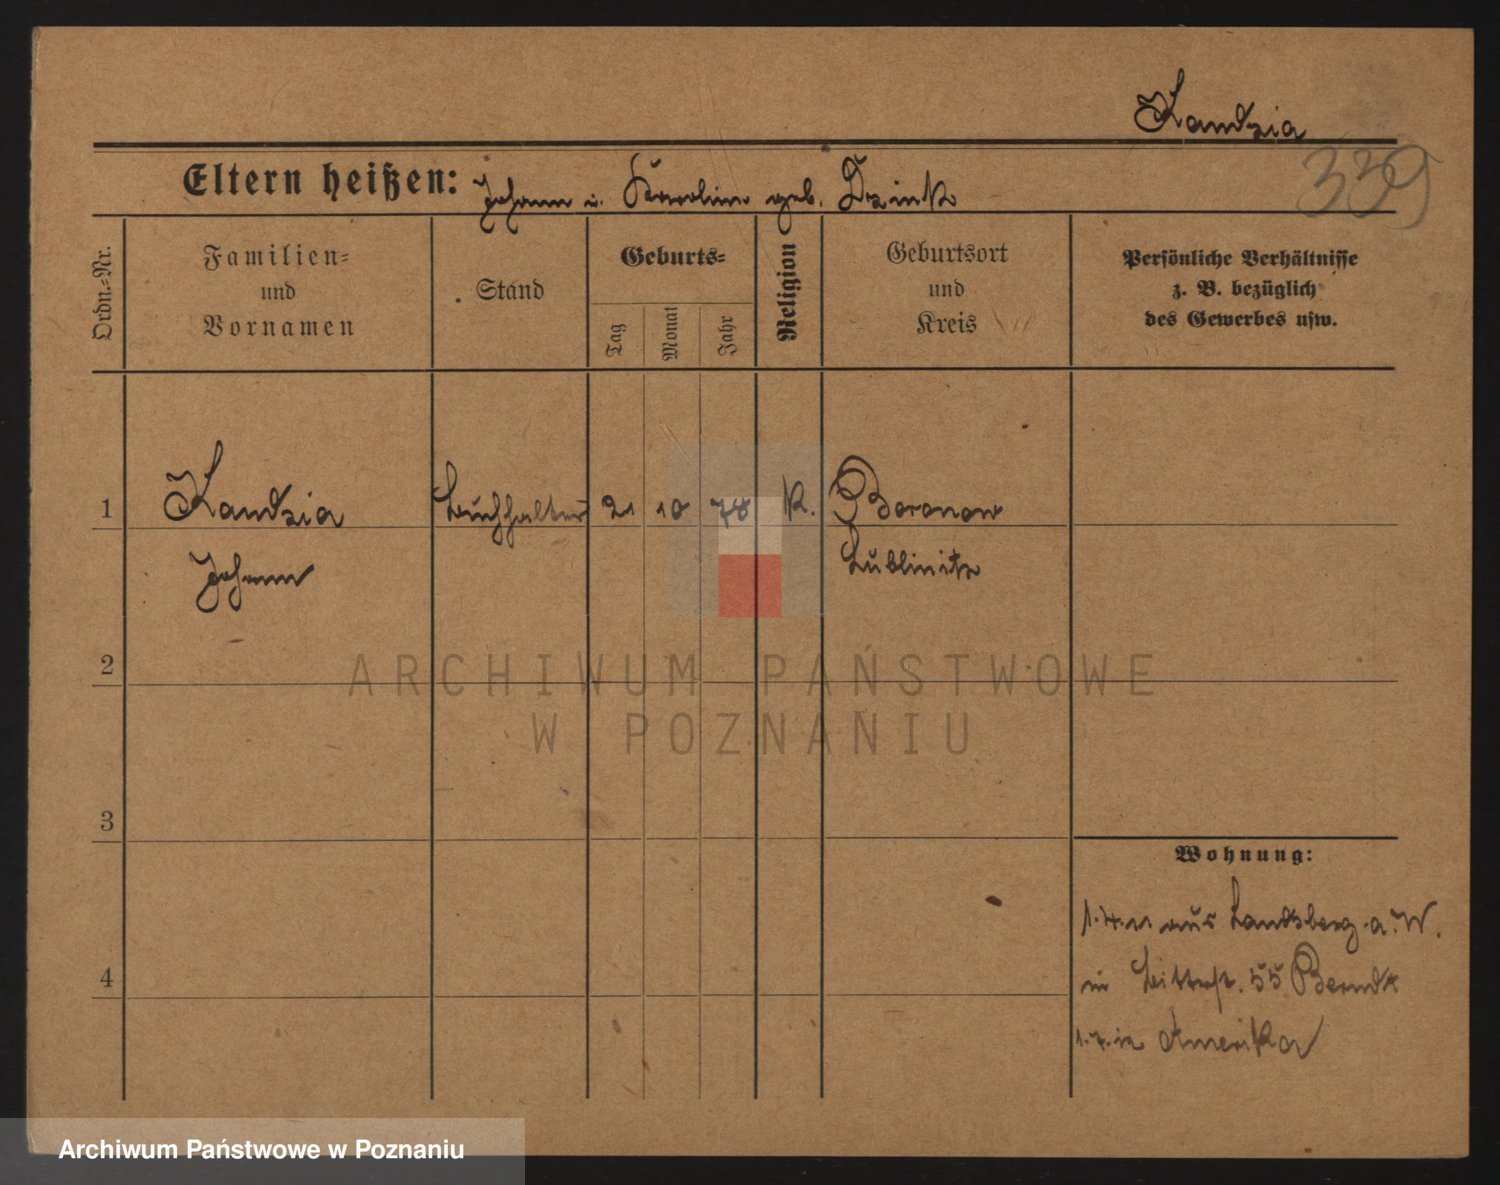 Kandzia
339
Eltern heißen: Johann u. Karoline geb. Dzink
Ordn.-Nr.
Familien-
und
Vornamen
Stand
Geburts-
Tag
Monat
Jahr
Religion
Geburtsort
und
Kreis
Persönliche Verhältnisse
z. B. bezüglich
des Gewerbes usw.
1 Kandzia Buchhalter 21 10 78 K. Boronow
Johann Lublinitz
2
3
4
Wohnung:
1.4.11 aus Landsberg a. W.
in 55 Berndt
in Amerika
ARCHIWUM PAŃSTWOWE
W POZNANIU
Archiwum Państwowe w Poznaniu